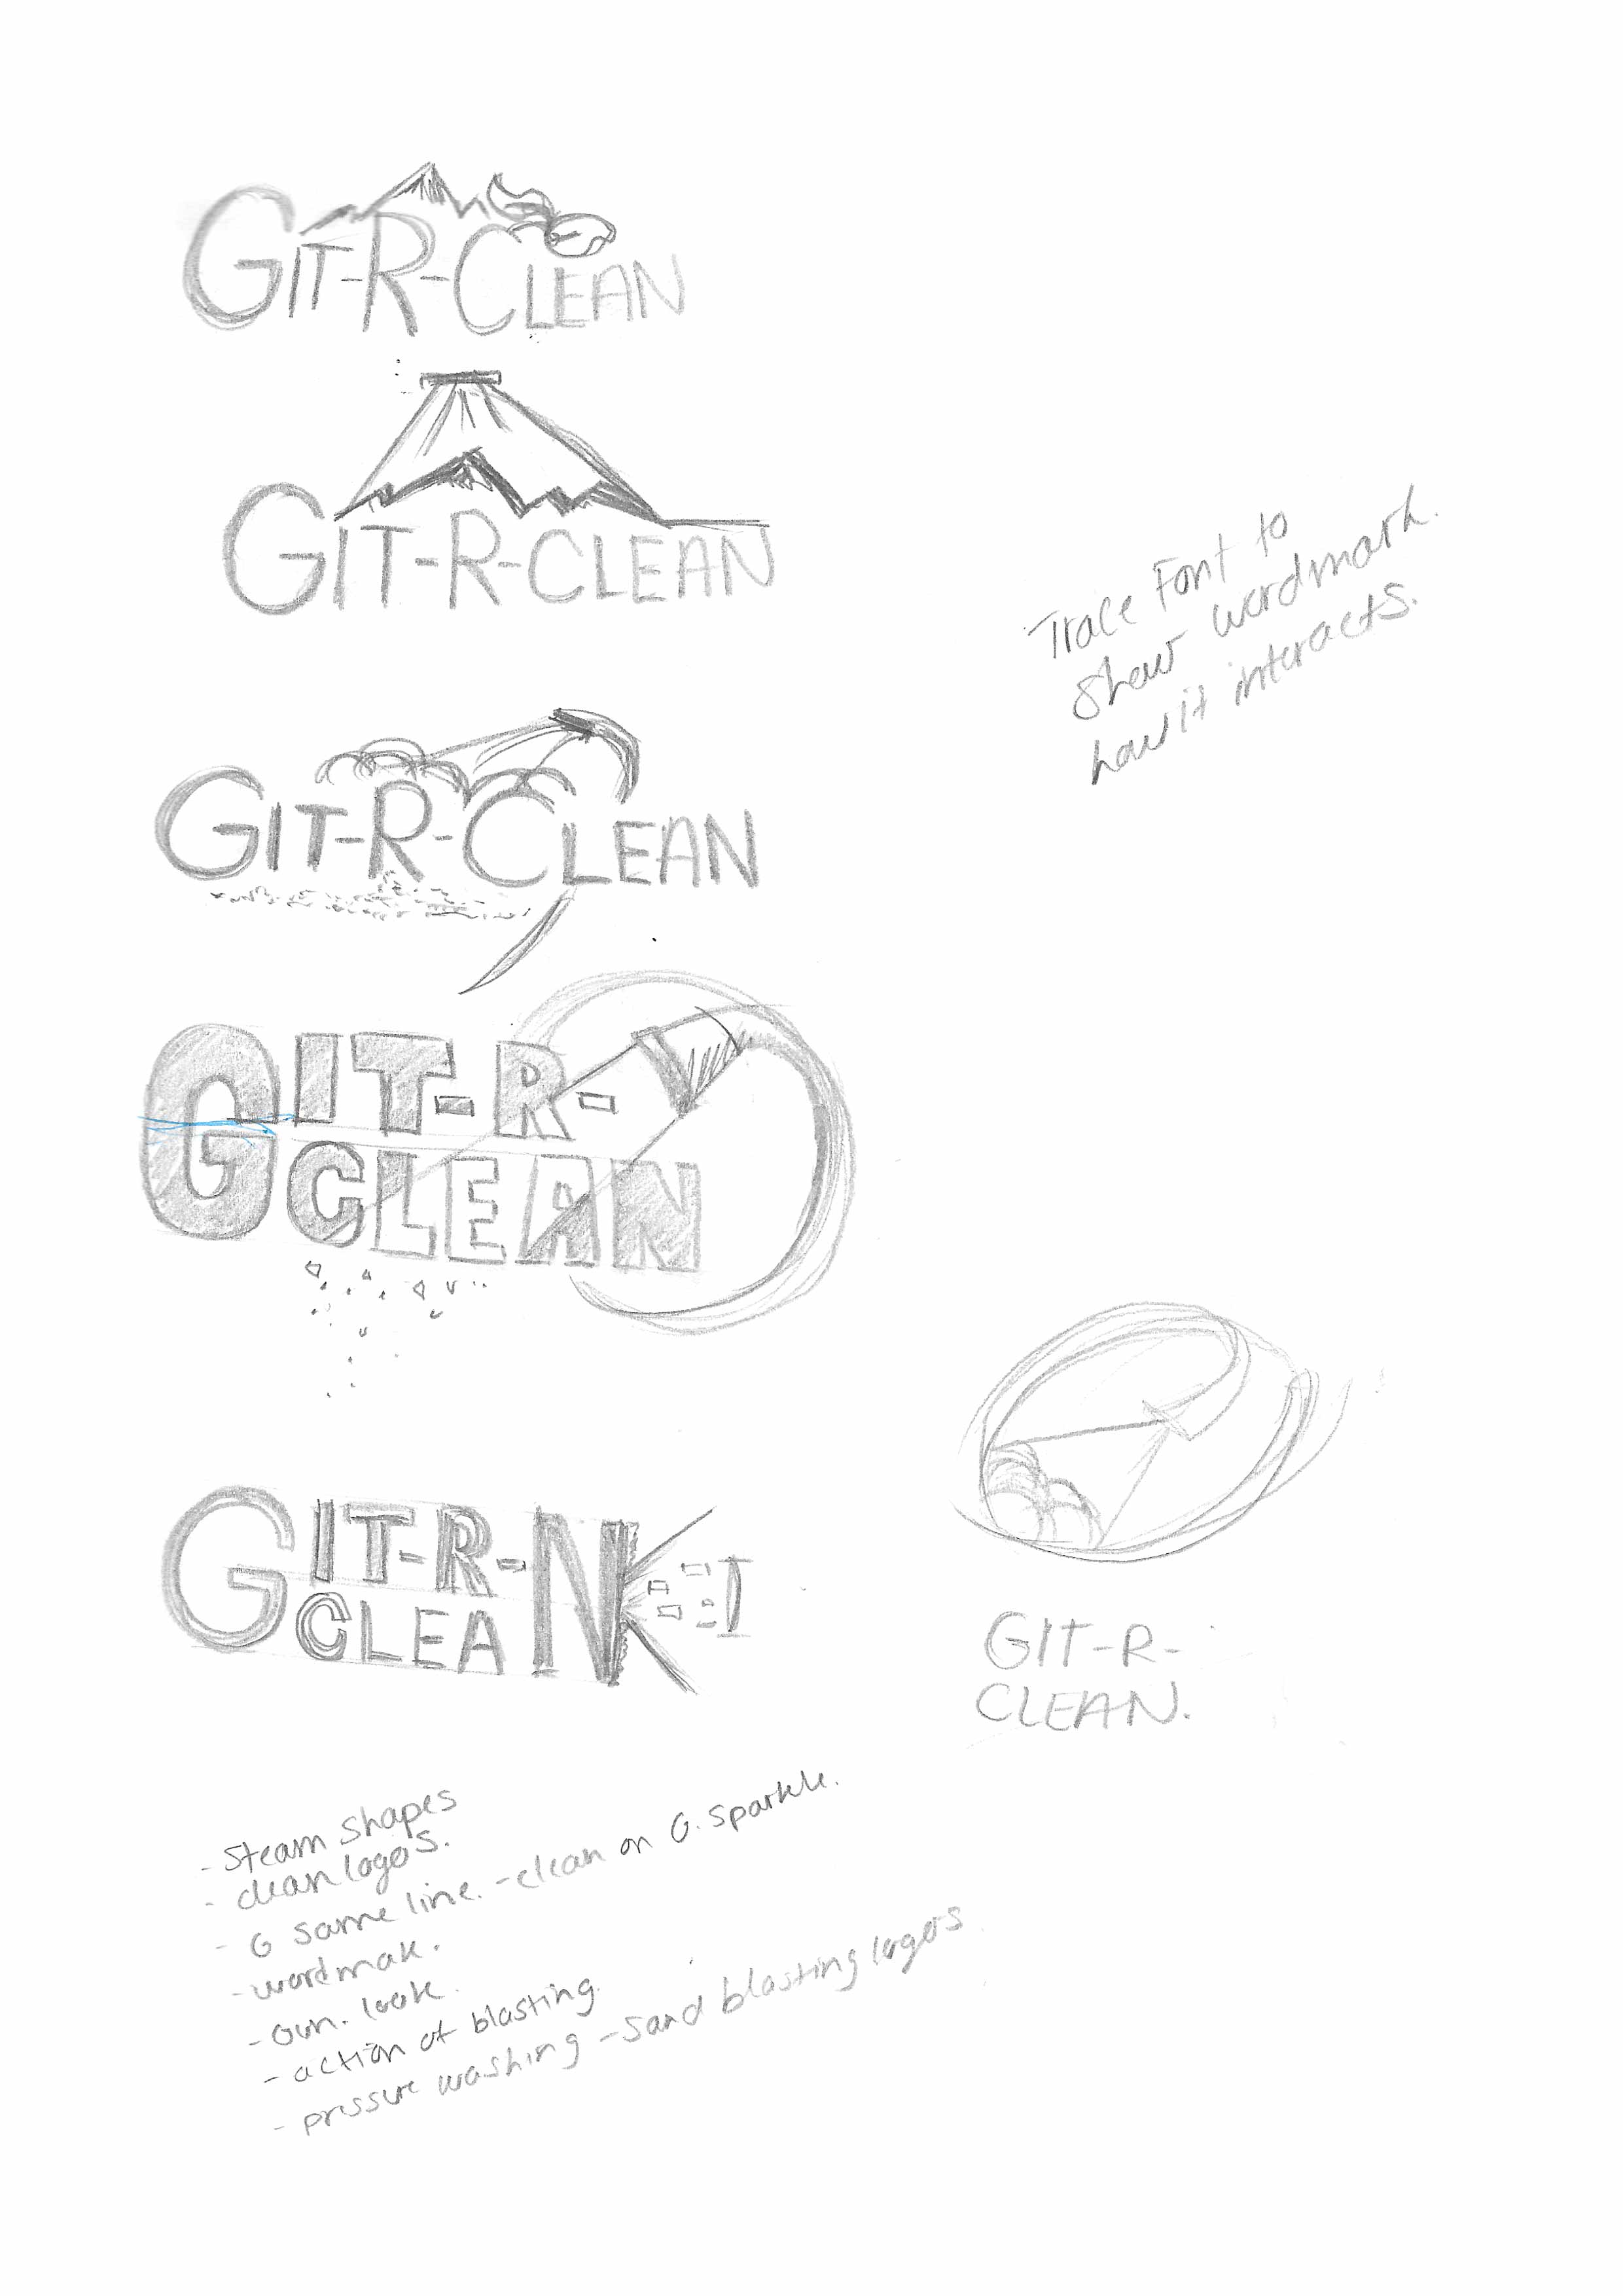 GIT-R-CLEAN
GIT-R-CLEAN
Trace Font to
show wordmark.
how it interacts.
GIT-R-CLEAN
GIT-R-
CLEAN
GIT-R-
CLEAN
GIT-R-
CLEAN.
- Steam shapes
- clean logos.
- G same line. - clean on G. sparkle.
- wordmak.
- own. look.
- action of blasting.
- pressure washing - sand blasting logos